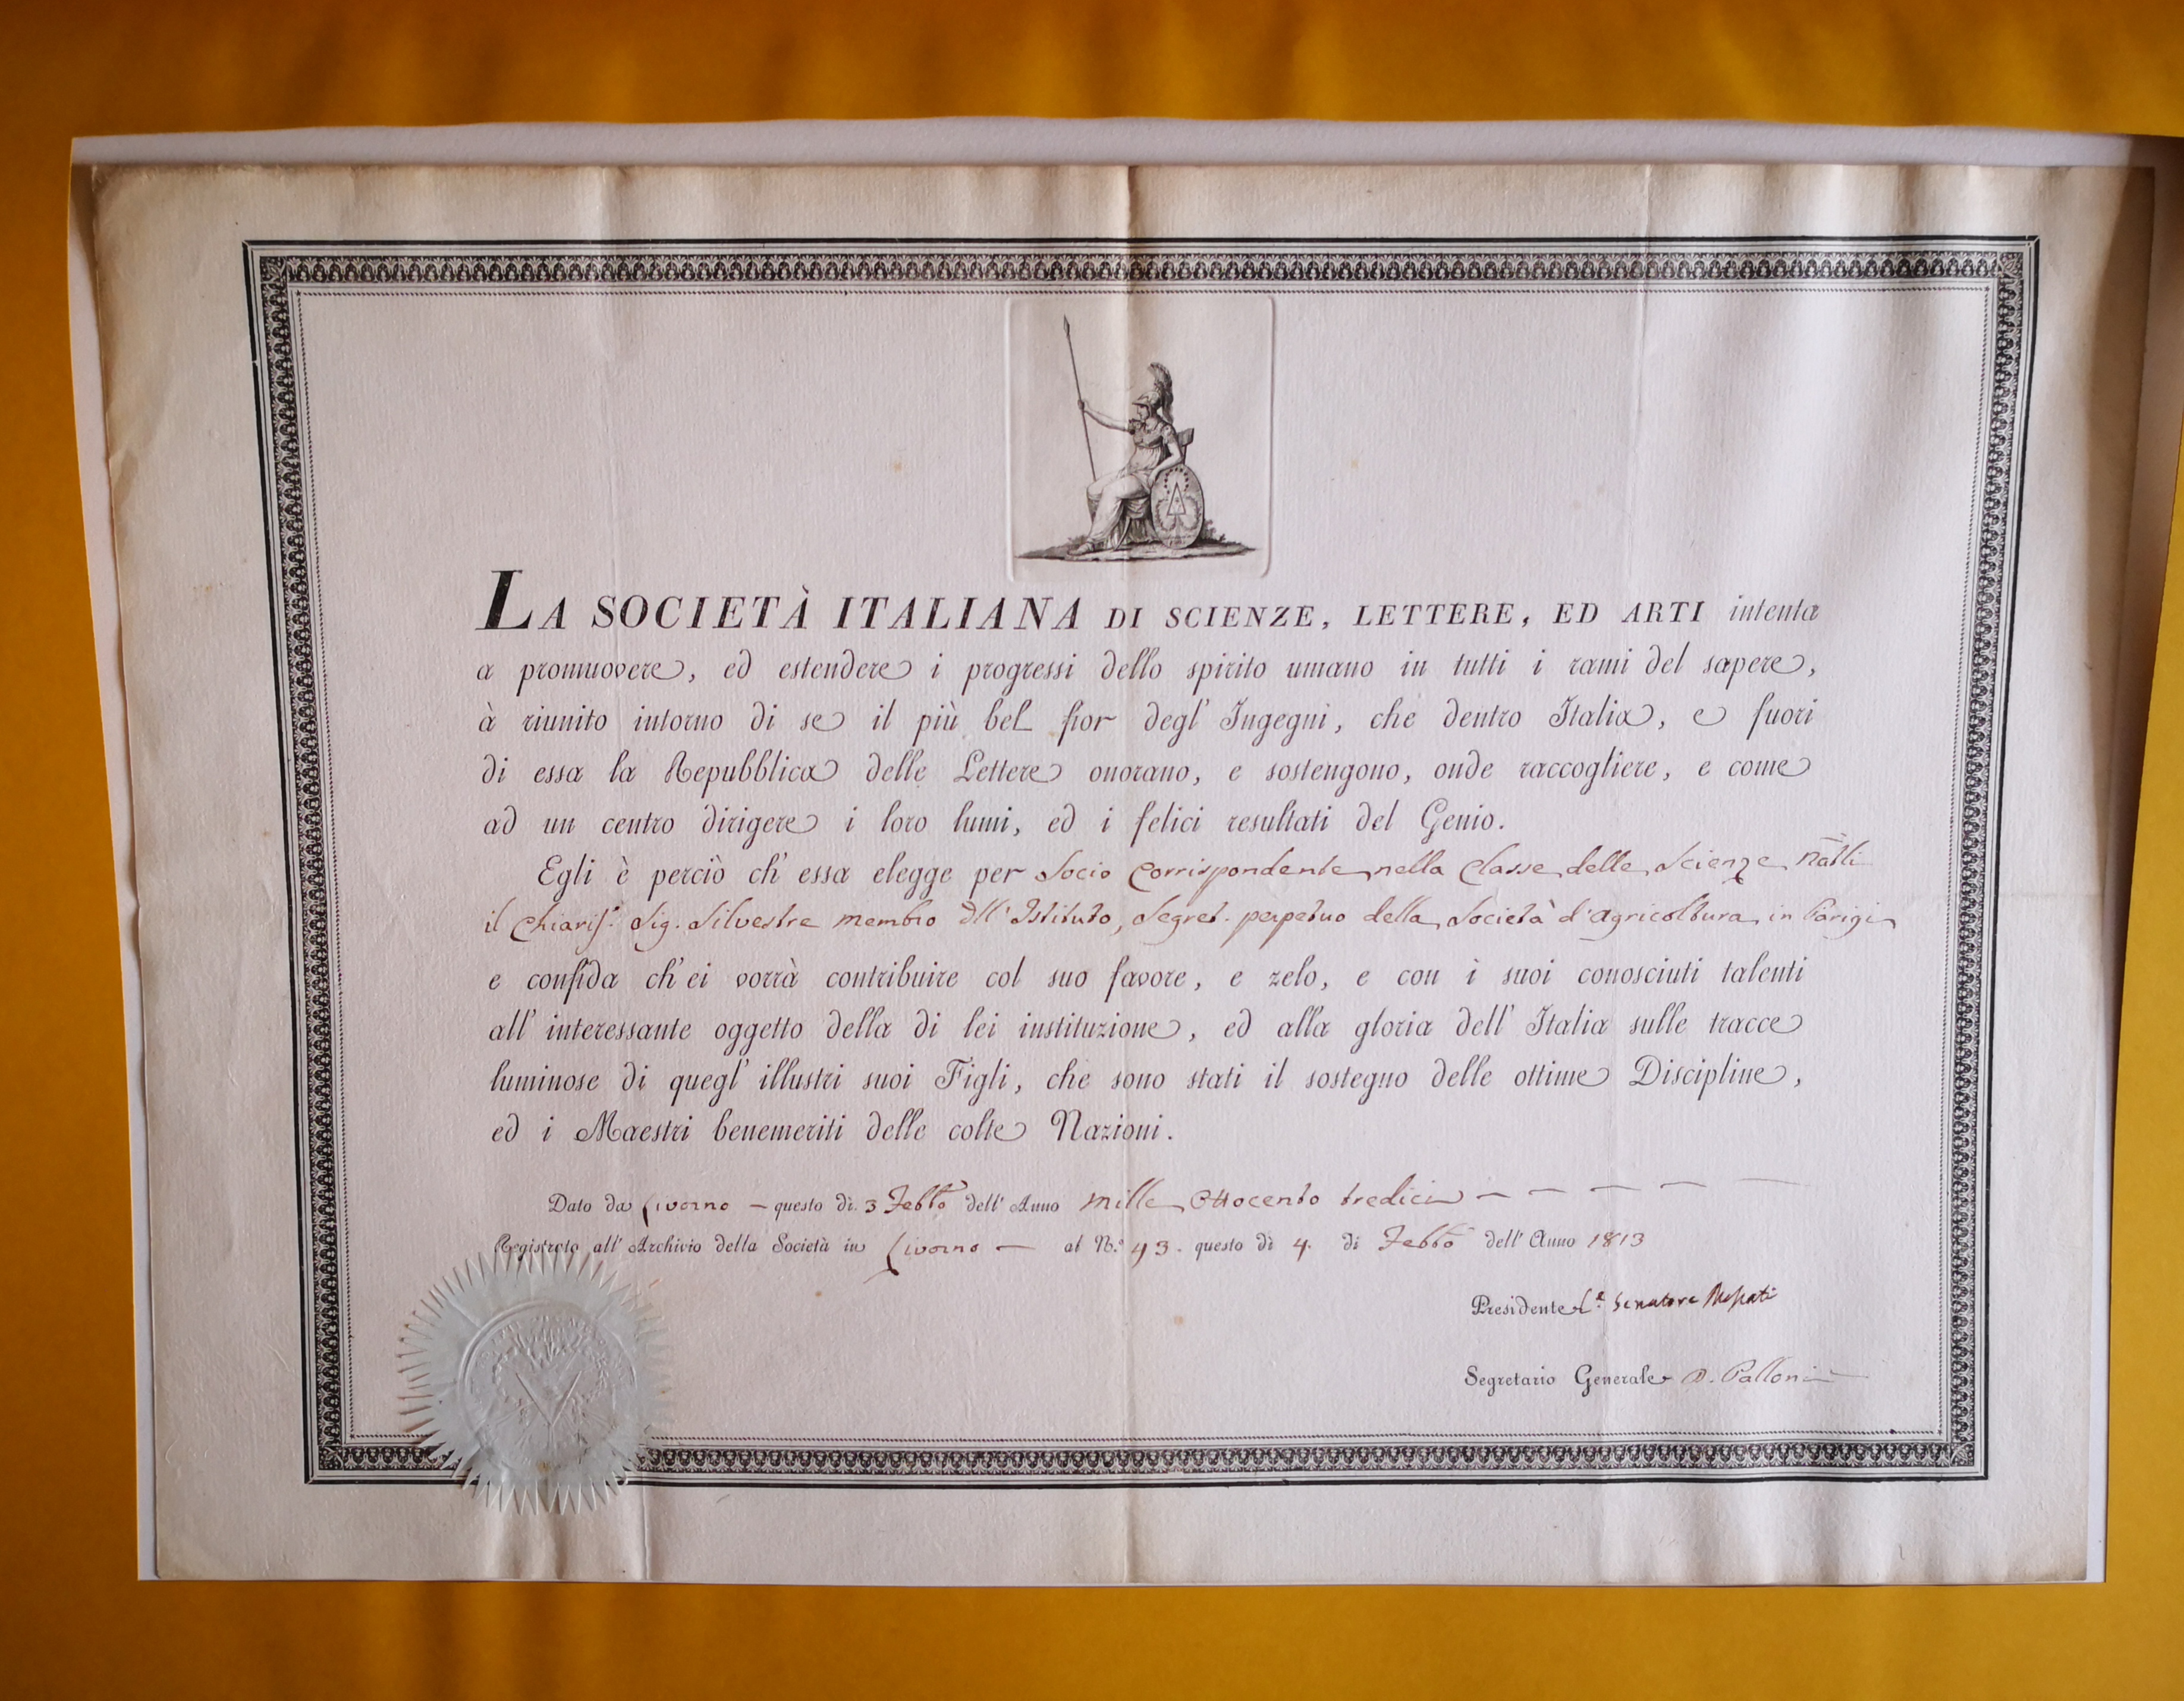 LA SOCIETÀ ITALIANA DI SCIENZE, LETTERE, ED ARTI intenta
a promuovere, ed estendere i progressi dello spirito umano in tutti i rami del sapere,
à riunito intorno di se il più bel fior degl' Ingegni, che dentro Italia, e fuori
di essa la Repubblica delle Lettere onorano, e sostengono, onde raccogliere, e come
ad un centro dirigere i loro lumi, ed i felici resultati del Genio.
Egli è perciò ch' essa elegge per Socio Corrispondente nella Classe delle Scienze Natli
il Chiaris.º Sig. Silvestre membro dll' Istituto, Segret. perpetuo della Società d'agricoltura in Parigi
e confida ch' ei vorrà contribuire col suo favore, e zelo, e con i suoi conosciuti talenti
all' interessante oggetto della di lei instituzione, ed alla gloria dell' Italia sulle tracce
luminose di quegl' illustri suoi Figli, che sono stati il sostegno delle ottime Discipline,
ed i Maestri benemeriti delle colte Nazioni.
Dato da Livorno – questo dì 3 Febbº dell' Anno Mille Ottocento tredici – – – – –
Registrato all' Archivio della Società in Livorno – al N.º 43. questo dì 4. di Febbº dell' Anno 1813
Presidente Senatore
Segretario Generale Palloni